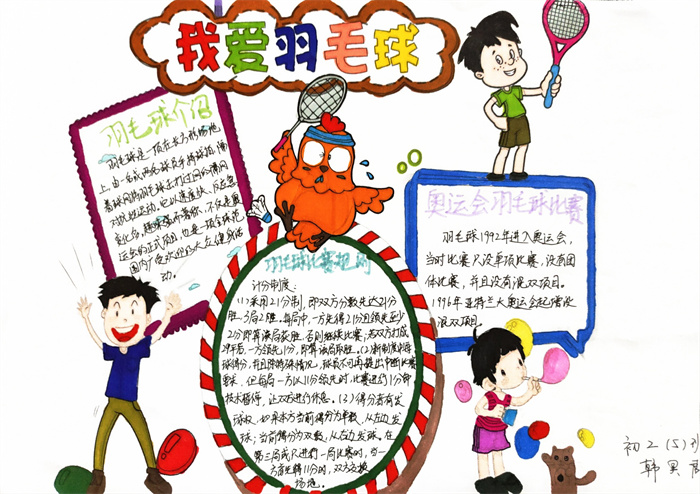 我爱羽毛球
羽毛球介绍
羽毛球是一项在长方形场地
上,由一名或两名球员手持球拍,隔
着球网将羽毛球来打过网的隔网
对抗性运动。它以速度快、
变化多、
运会的正式项目,也是一项全球范
国内广受欢迎的大众健身活
动。
羽毛球比赛规则
计分制度:
(1)采用21分制,即双方分数先达21分
胜,3局2胜。每局中,一方先得21分且领先至少
2分即算该局获胜,否则继续比赛;若双方打成
29平后,一方领先1分,即算该局取胜。(2)新制度中每
球得分,并且除特殊情况,球员不可再提出中断比赛
要求。但每局一方以11分领先时,比赛进行1分钟
技术暂停,让双方进行休息。(3)得分者有发
球权,如果本方当前得分为单数,从左边发
球;当前得分为双数,从右边发球。在
第三局或只进行一局比赛时,当一
方首先得11分时,双方交换
场地。
奥运会羽毛球比赛
羽毛球1992年进入奥运会,
当时比赛只设单项比赛,没有团
体比赛,并且没有混双项目。
1996年亚特兰大奥运会起增设
混双项目。
初2(5)
韩